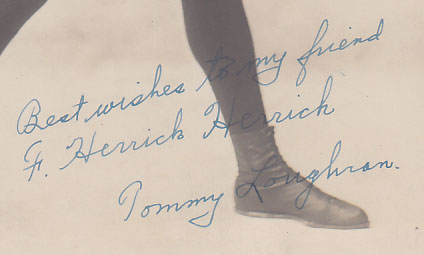 Best wishes to my friend
F. Herrick Herrick
Tommy Loughran.